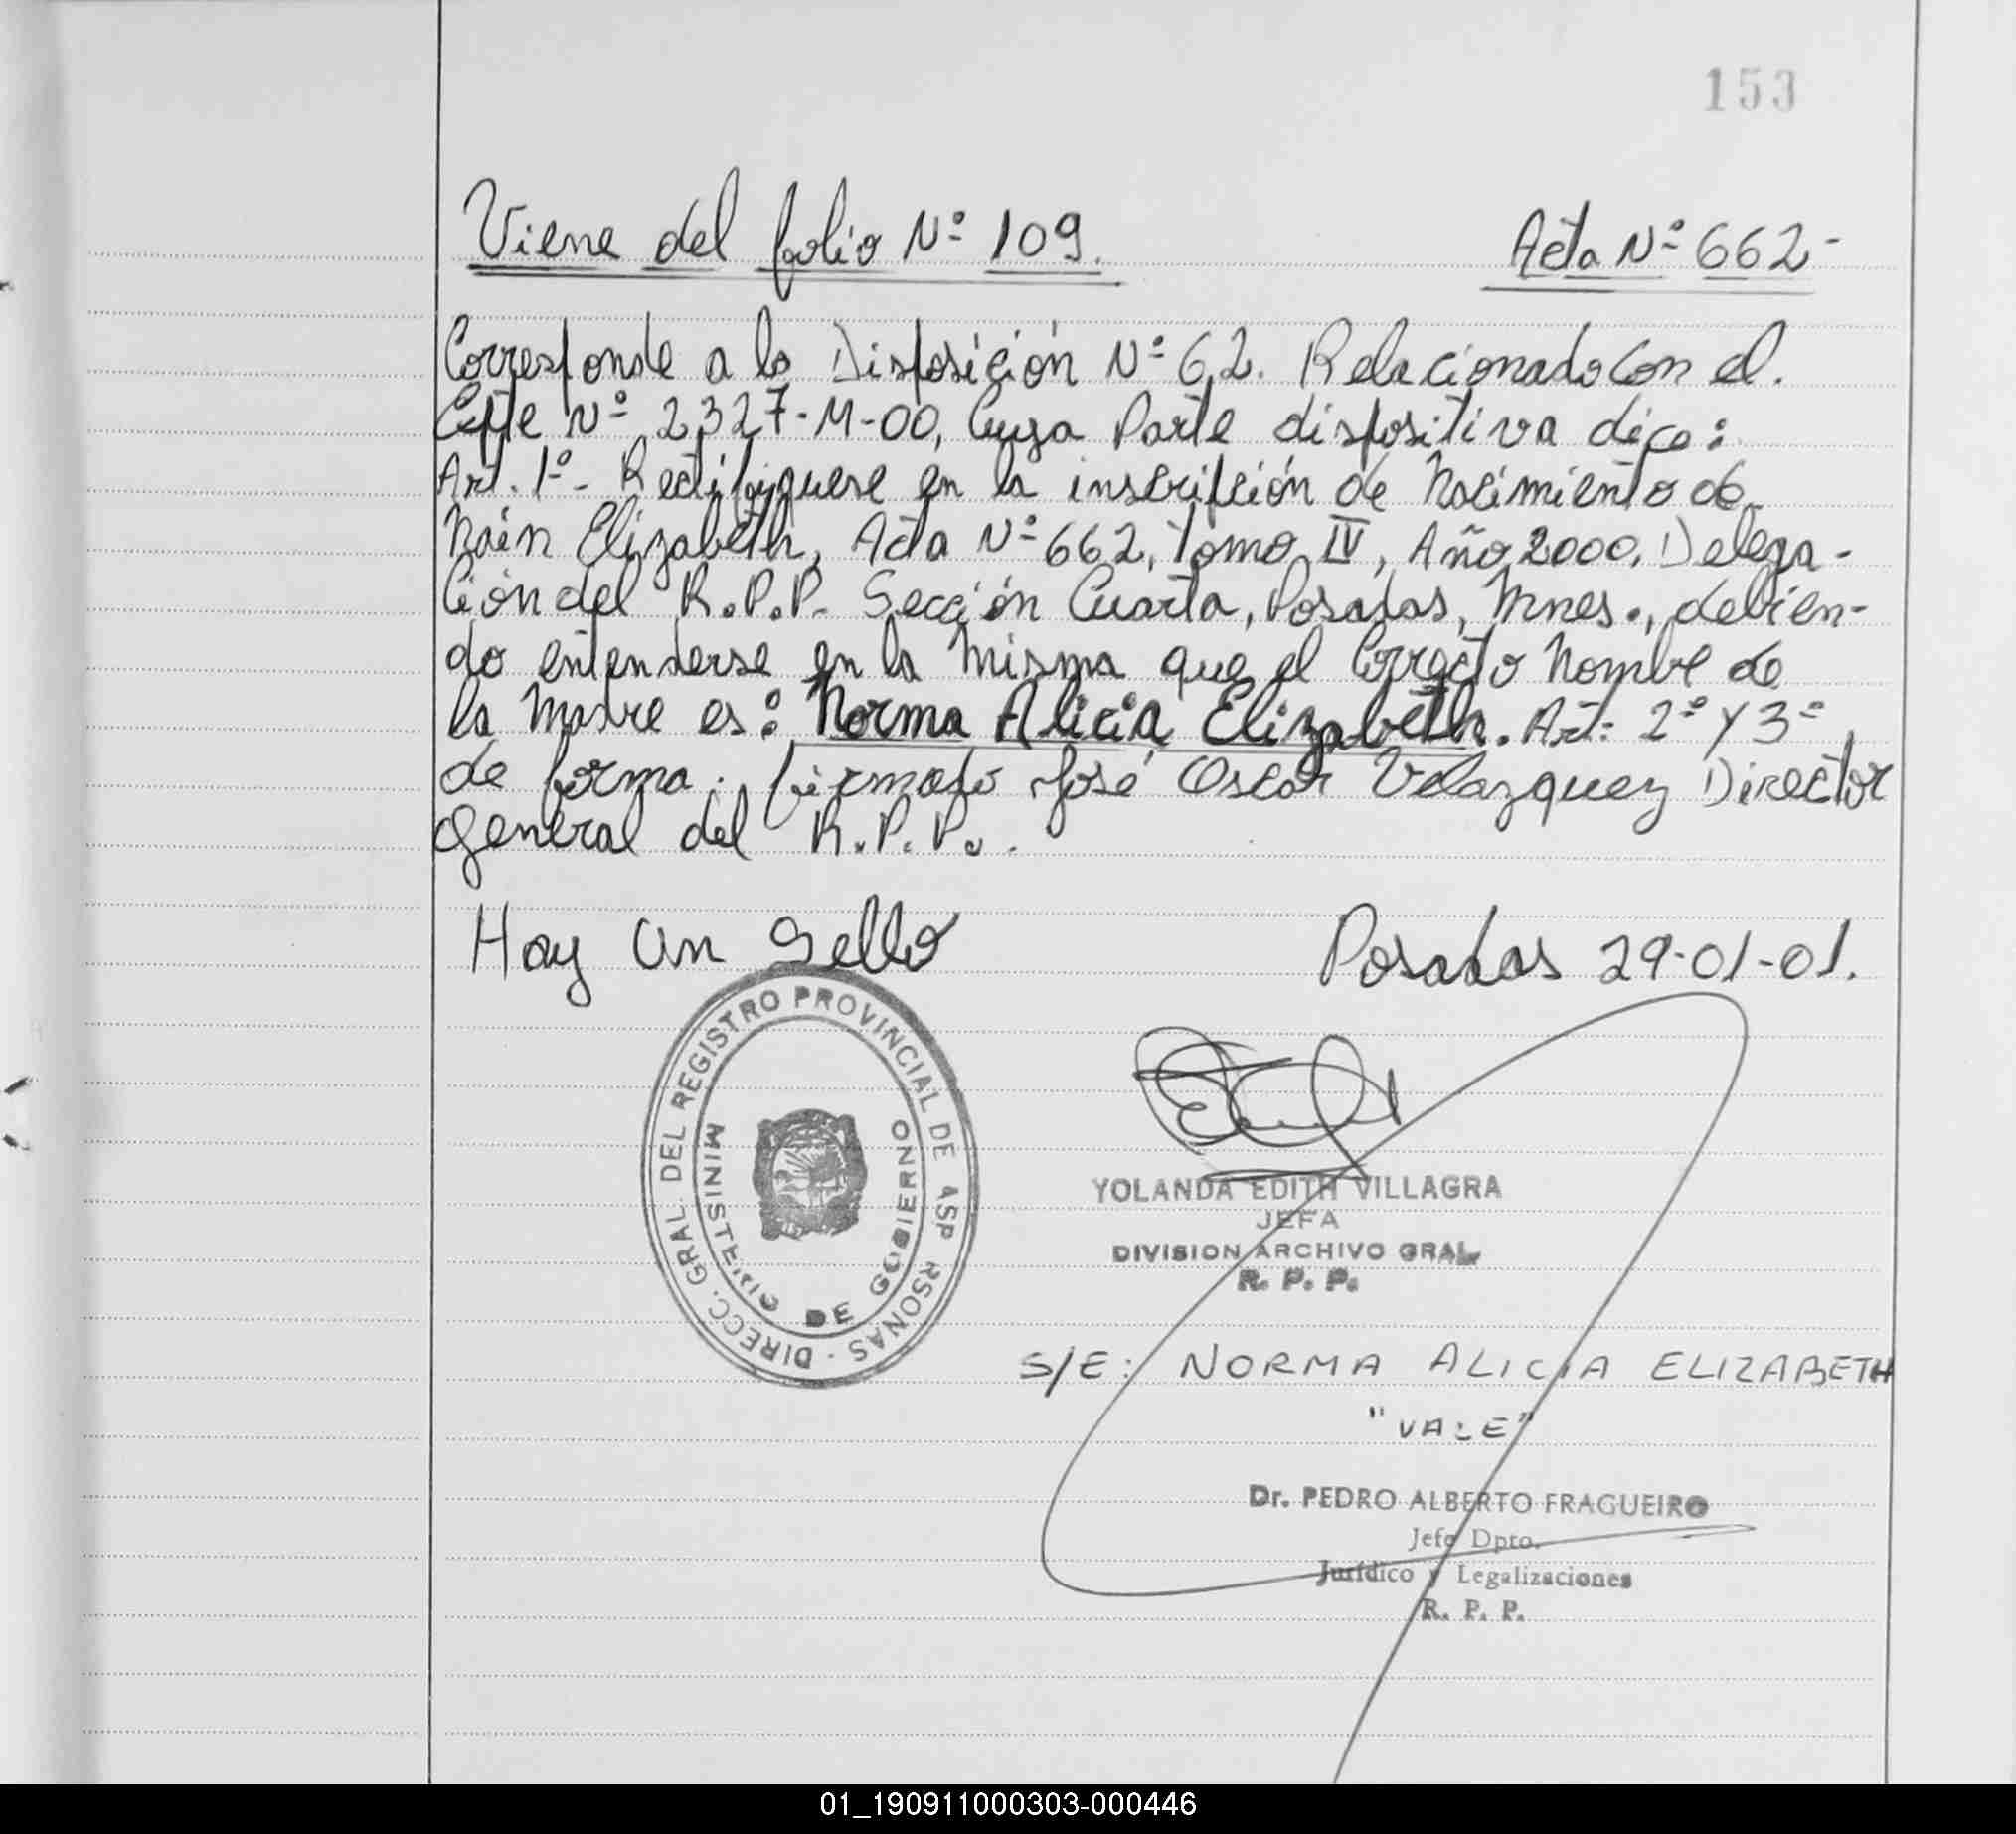 153
Viene del folio Nº 109. Acta Nº 662-
Corresponde a la Disposición Nº 62. Relacionado con el.
Expte Nº 2327-M-00, Cuya Parte dispositiva dice:
Art. 1º- Rectifíquese en la inscripción de Nacimiento de
Elizabeth, Acta Nº 662, Tomo IV, Año 2000, Delega-
ción del R.P.P. Sección Cuarta, Posadas, Mnes., debien-
do entenderse en la misma que el Correcto Nombre de
la Madre es: Norma Alicia Elizabeth. Art: 2º y 3º
de forma. firmado José Oscar Velazquez Director
General del R.P.P..
Hay Un Sello Posadas 29-01-01.
DIRECC. GRAL DEL REGISTRO PROVINCIAL DE ASP RSONAS -
MINISTERIO DE GOBIERNO
YOLANDA EDITH VILLAGRA
JEFA
DIVISION ARCHIVO GRAL.
R. P. P.
S/E: NORMA ALICIA ELIZABETH
"VALE"
Dr. PEDRO ALBERTO FRAGUEIRO
Jefe Dpto.
Jurídico y Legalizaciones
R. P. P.
01_190911000303-000446